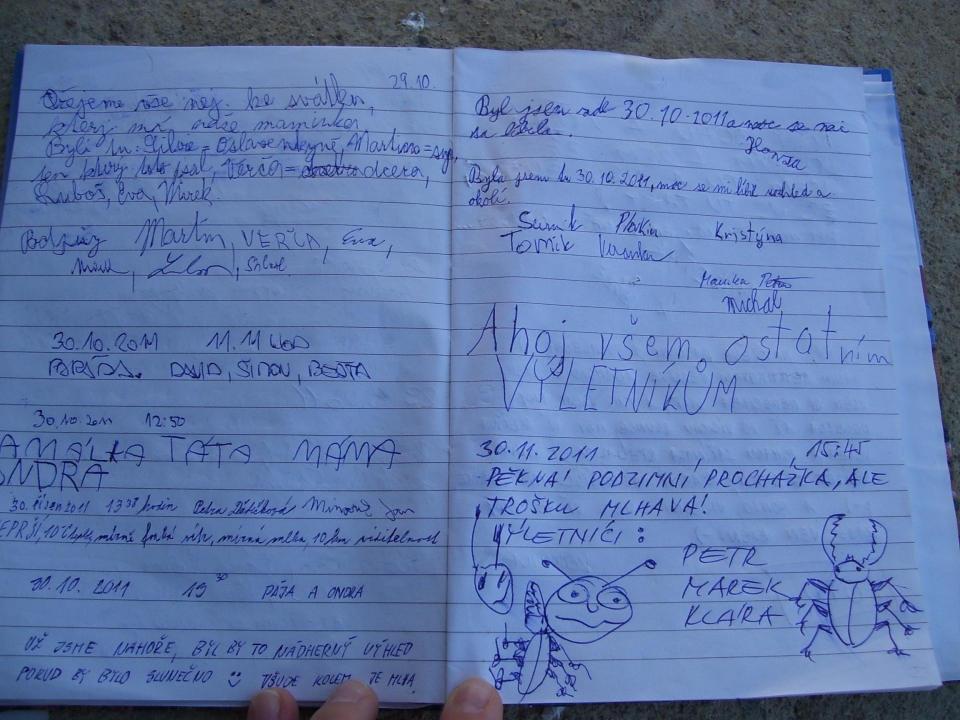 29.10.
vše nej. ke svátku,
který má naše maminka
Byli tu: = Oslavenkyně, Martin = syn,
ten který toto psal, Verča = dcera,
Luboš, Eva, Mirek.
Podpisy Martin, VERČA, Eva,
Mirek,
30.10.2011 11.11 HOD
DAVID, ŠIMON, BEÁTA
30.10.2011 12:50
AMÁLKA TÁTA MÁMA
ONDRA
30. říjen 2011 13 38 hodin Petra Jan
NEPRŠÍ, 10°C mírně vítr, mírná mlha, 10 km viditelnost
30.10.2011 PÁJA A ONDRA
UŽ JSME NAHOŘE, BYL BY TO NÁDHERNÝ VÝHLED
POKUD BY BYLO SLUNEČNO VŠUDE KOLEM JE MLHA.
Byl jsem zde 30.10.2011 a moc se mi
Honza
Byla jsem tu 30.10.2011, moc se mi líbil vzhled a
okolí.
Kristýna
Tomík
Michal
Ahoj všem ostatním
VÝLETNÍKŮM
30.11.2011 15:45
PĚKNÁ PODZIMNÍ PROCHÁZKA, ALE
TROŠKU MLHAVÁ!
VÝLETNÍCI:
PETR
MAREK
KLÁRA